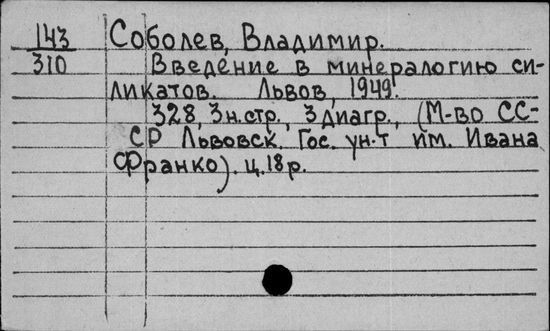 143 Соболев, Владимир.
310 Введение в минералогию си-
ликатов. Львов, 1949.
328, 3 н.стр., 3 диагр., (М-во СС-
СР Львовск. Гос. ун-т им. Ивана
Франко). ц. 18 р.